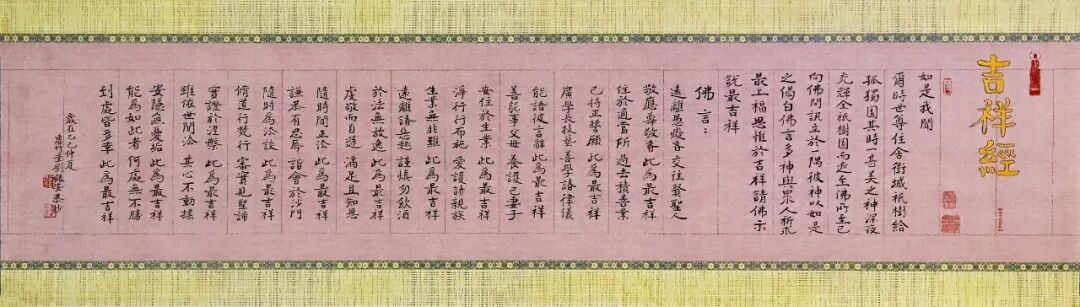 吉祥經
如是我聞
爾時世尊住舍衛城祇樹給
孤獨園其時一甚美之神深夜
光輝全祇樹園而近至佛所至已
向佛問訊立於一隅彼神以如是
之偈白佛言多神與眾人祈求
最上福思惟於吉祥請佛示
說最吉祥
佛言：
遠離愚痴者 交往賢聖人
敬應尊敬者 此為最吉祥
住於適當所 過去積善業
己持正誓願 此為最吉祥
廣學長技藝 善學諸律儀
能諳彼言辭 此為最吉祥
善能事父母 養護己妻子
安住於生業 此為最吉祥
淨行行布施 愛護諸親族
生業無非難 此為最吉祥
遠離諸惡趣 謹慎勿飲酒
於法無放逸 此為最吉祥
虔敬而自遜 滿足且知恩
隨時聞正法 此為最吉祥
謙恭有忍辱 謁會於沙門
隨時為法談 此為最吉祥
修道行梵行 審實見聖諦
實證於涅槃 此為最吉祥
雖依世間法 其心不動搖
安隱無憂垢 此為最吉祥
能為如此者 何處無不勝
到處皆多幸 此為最吉祥
歲在乙巳仲夏
劉 恭抄